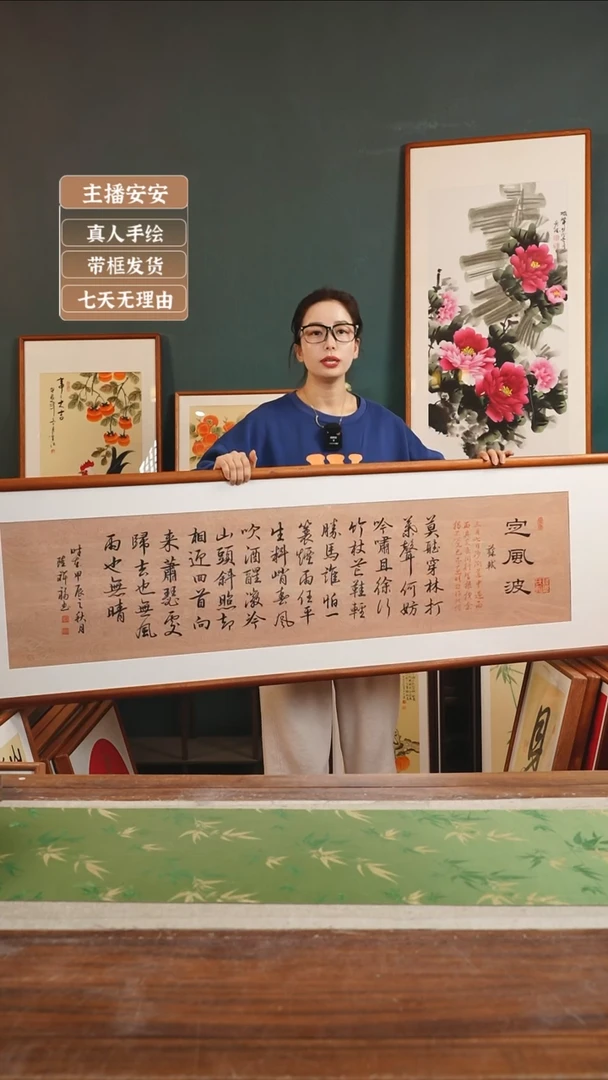 主播安安
真人手绘
带框发货
七天无理由
事大吉
定風波
蘇軾
莫聽穿林打
葉聲何妨
吟嘯且徐行
竹杖芒鞋輕
勝馬誰怕一
蓑煙雨任平
生料峭春風
吹酒醒微冷
山頭斜照却
相迎回首向
来蕭瑟處
歸去也無風
雨也無晴
時在甲辰之秋月